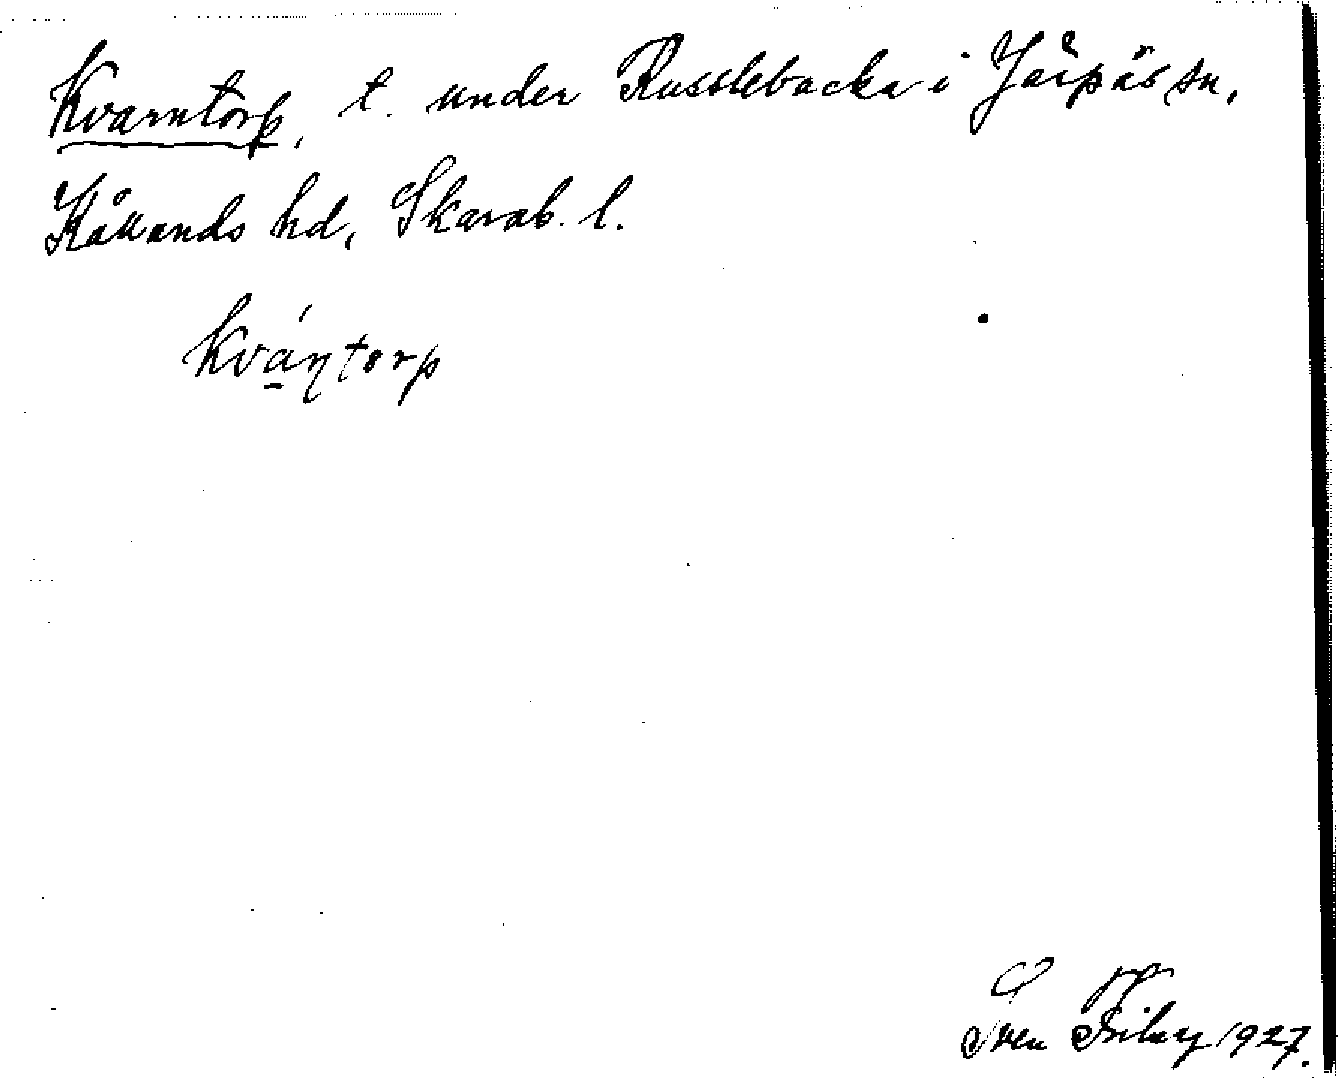 Kvarntorp, t. under Russlebacka i Järpås sn,
Kållands hd, Skarab. l.
kvántorp
Sven 1927.